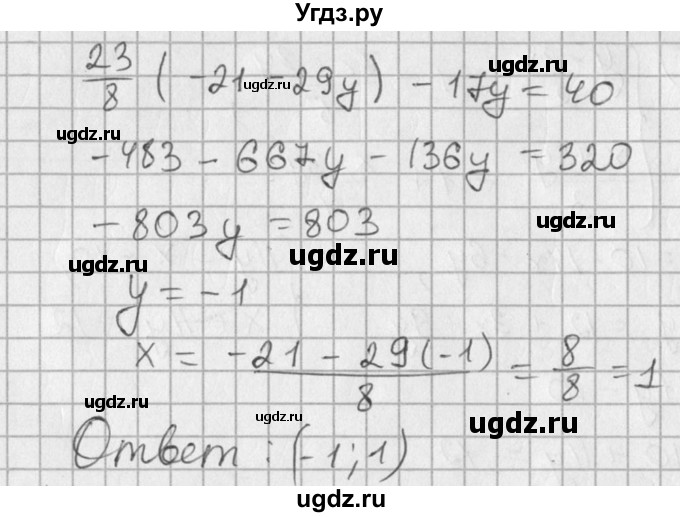 Угдз.ру
23/8 ( -21 -29y ) - 17y = 40
ugdz.ru
ugdz.ru
ugdz.ru
-483 - 667y - 136y = 320
-803y = 803
ugdz.ru
ugdz.ru
ugdz.ru
y = -1
x = (-21 - 29(-1))/8 = 8/8 = 1
ugdz.ru
ugdz.ru
ugdz.ru
Ответ : (-1; 1)
ugdz.ru